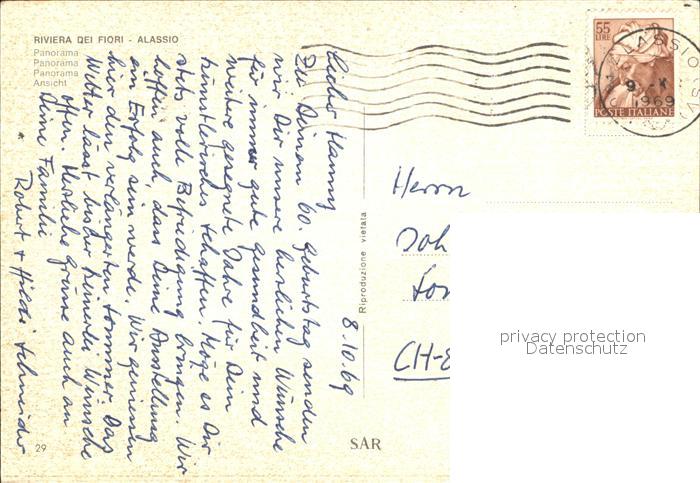 RIVIERA DEI FIORI - ALASSIO
Panorama
Panorama
Panorama
Ansicht
8.10.69
Lieber Hanny
Zu Deinem 60. Geburtstag senden
wir Dir unsere herzlichen Wünsche
für immer gute Gesundheit und
weitere gesegnete Jahre für Dein
künstlerisches Schaffen. Möge es Dir
stets volle Befriedigung bringen. Wir
hoffen auch, dass Deine Ausstellung
ein Erfolg sein werde. Wir geniessen
hier den verlängerten Sommer. Das
Wetter lässt bisher keinerlei Wünsche
offen. Herzliche Grüsse auch an
Deine Familie
Robert + Hildi Schneider
29
SAR
Riproduzione vietata
55
LIRE
POSTE ITALIANE
ALASSIO
1969
Herrn
Joh
CH-
privacy protection
Datenschutz